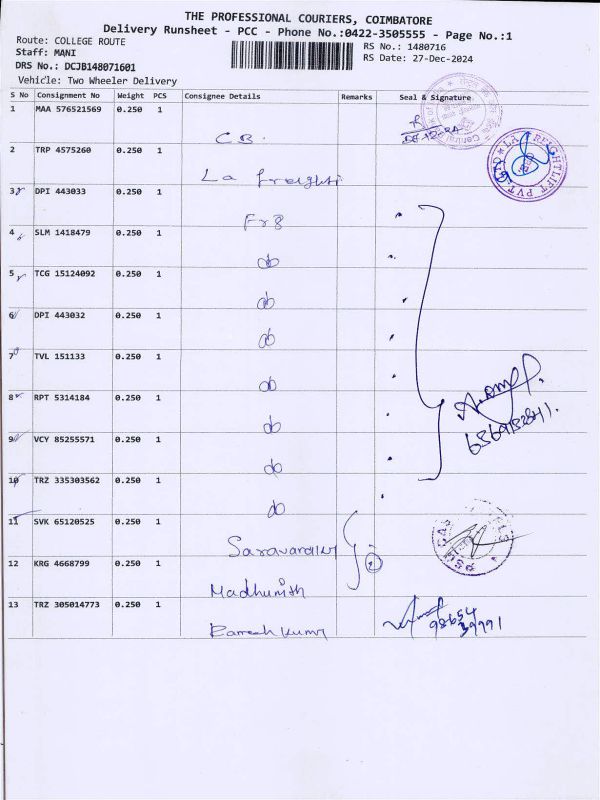 THE PROFESSIONAL COURIERS, COIMBATORE
Delivery Runsheet - PCC - Phone No.:0422-3505555 - Page No.:1
Route: COLLEGE ROUTE
Staff: MANI
DRS No.: DCJB148071601
Vehicle: Two Wheeler Delivery
RS No.: 1480716
RS Date: 27-Dec-2024
S No Consignment No Weight PCS Consignee Details Remarks Seal & Signature
1 MAA 576521569 0.250 1 C B.
2 TRP 4575260 0.250 1 La freights
3 DPI 443033 0.250 1 Fr8
4 SLM 1418479 0.250 1 do
5 TCG 15124092 0.250 1 do
6 DPI 443032 0.250 1 do
7 TVL 151133 0.250 1 do
8 RPT 5314184 0.250 1 do
9 VCY 85255571 0.250 1 do
10 TRZ 335303562 0.250 1 do
11 SVK 65120525 0.250 1
12 KRG 4668799 0.250 1 Madhumish
13 TRZ 305014773 0.250 1 Ramesh Kumar
98654